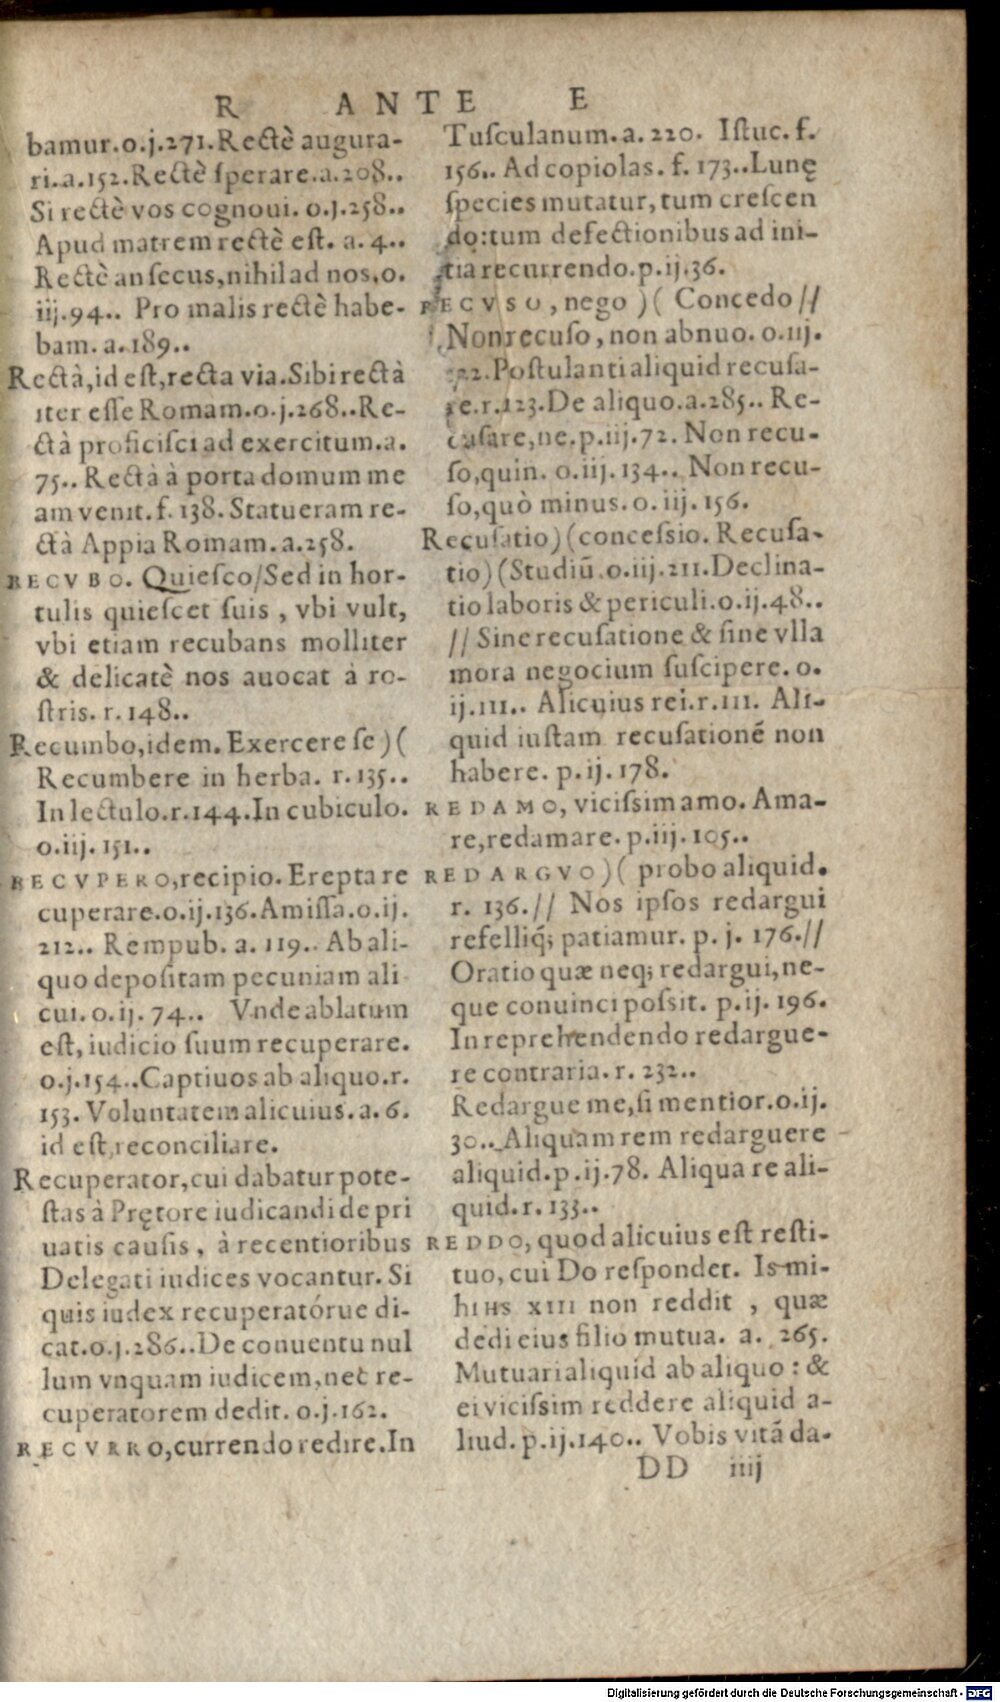 R ANTE E
bamur.o.j.271.Rectè augura-
ri.a.152.Rectè ſperare.a.208..
Si rectè vos cognoui. o.j.258..
Apud matrem rectè eſt. a. 4..
Rectè an ſecus,nihil ad nos.o.
iij.94.. Pro malis rectè habe-
bam. a.189..
Rectà,id eſt,recta via.Sibi rectà
iter eſſe Romam.o.j.268..Re-
ctà proficiſci ad exercitum.a.
75.. Rectà à porta domum me
am venit.f. 138. Statueram re-
ctà Appia Romam.a.258.
RECVBO. Quieſco/Sed in hor-
tulis quieſcet ſuis , vbi vult,
vbi etiam recubans molliter
& delicatè nos auocat à ro-
ſtris. r. 148..
Recumbo,idem. Exercere ſe )(
Recumbere in herba. r.135..
In lectulo.r.144.In cubiculo.
o.iij. 151..
RECVPERO,recipio. Erepta re
cuperare.o.ij.136.Amiſſa.o.ij.
212.. Rempub. a. 119.. Ab ali-
quo depoſitam pecuniam ali
cui. o.ij. 74.. Vnde ablatum
eſt, iudicio ſuum recuperare.
o.j.154..Captiuos ab aliquo.r.
153. Voluntatem alicuius.a.6.
id eſt,reconciliare.
Recuperator,cui dabatur pote-
ſtas à Prętore iudicandi de pri
uatis cauſis , à recentioribus
Delegati iudices vocantur. Si
quis iudex recuperatórue di-
cat.o.j.286..De conuentu nul
lum vnquam iudicem,nec re-
cuperatorem dedit. o.j.162.
RECVRRO,currendo redire.In
Tuſculanum. a. 220. Iſtuc. f.
156.. Ad copiolas. f. 173..Lunę
ſpecies mutatur, tum creſcen
do:tum defectionibus ad ini-
tia recurrendo.p.ij.36.
RECVSO, nego )( Concedo//
Non recuſo, non abnuo. o.iij.
22.Poſtulanti aliquid recuſa-
re.r.123.De aliquo.a.285.. Re-
cuſare,ne.p.iij.72. Non recu-
ſo,quin. o.iij. 134.. Non recu-
ſo,quò minus. o. iij. 156.
Recuſatio)(conceſsio. Recuſa-
tio)(Studiũ.o.iij.211.Declina-
tio laboris & periculi.o.ij.48..
// Sine recuſatione & ſine vlla
mora negocium ſuſcipere. o.
ij.111.. Alicuius rei.r.111. Ali-
quid iuſtam recuſationẽ non
habere. p.ij. 178.
REDAMO, viciſsim amo. Ama-
re,redamare. p.iij. 105..
REDARGVO)( probo aliquid.
r. 136.// Nos ipſos redargui
refelliq́; patiamur. p. j. 176.//
Oratio quæ neq; redargui,ne-
que conuinci poſsit. p.ij. 196.
In reprehendendo redargue-
re contraria. r. 232..
Redargue me,ſi mentior.o.ij.
30.. Aliquam rem redarguere
aliquid.p.ij.78. Aliqua re ali-
quid.r. 133..
REDDO, quod alicuius eſt reſti-
tuo, cui Do reſpondet. Is mi-
hi HS XIII non reddit , quæ
dedi eius filio mutua. a. 265.
Mutuari aliquid ab aliquo : &
ei viciſsim reddere aliquid a-
liud. p.ij.140.. Vobis vitã da-
DD iiij
Digitalisierung gefördert durch die Deutsche Forschungsgemeinschaft - DFG